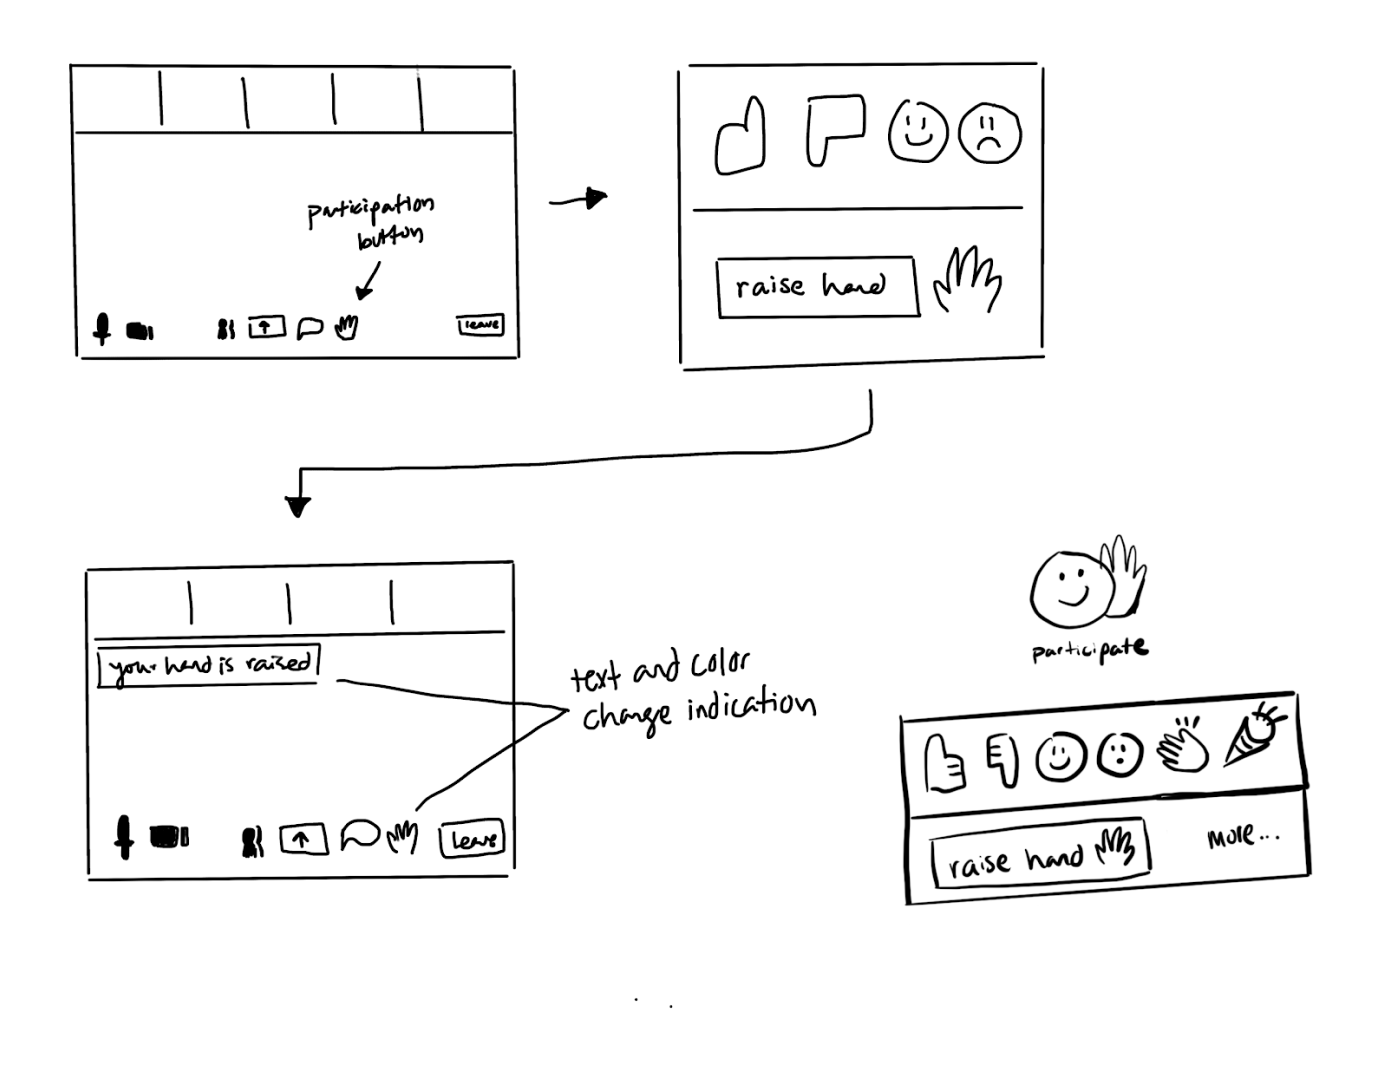 participation
button
leave
raise hand
your hand is raised
text and color
change indication
leave
participate
raise hand
more...